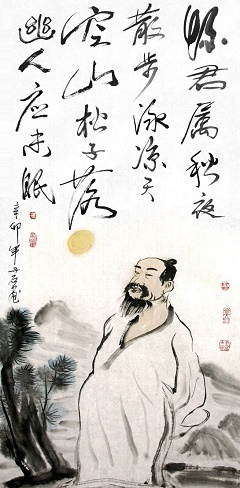 怀君属秋夜
散步咏凉天
空山松子落
幽人应未眠
辛卯年丹石画